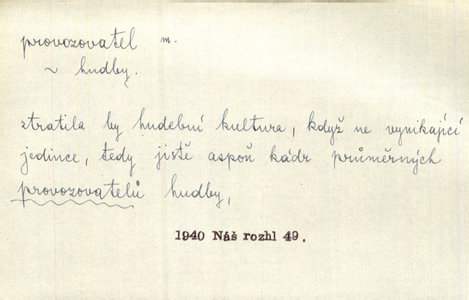 provozovatel m.
~ hudby.
ztratila by hudební kultura, když ne vynikající
jedince, tedy jistě aspoň kádr průměrných
provozovatelů hudby,
1940 Náš rozhl 49.